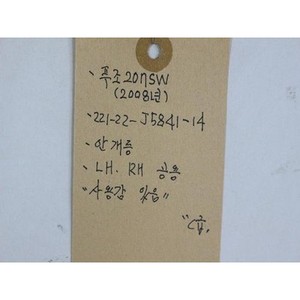 · 푸조207SW
(2008년)
· 221-22-J5841-14
· 안개등
· LH. RH 공용
"사용감 있음"
"C급,